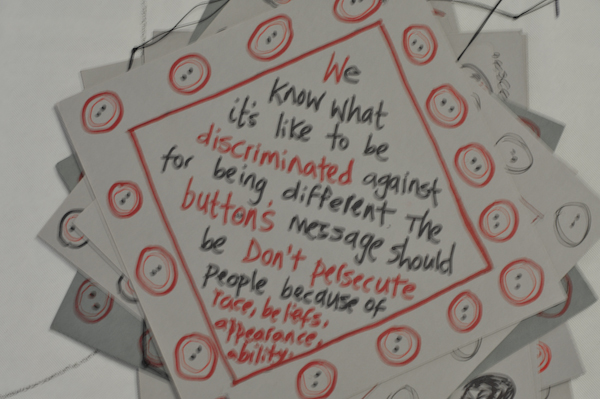 We
know what
it's like to be
discriminated against
for being different The
buttons message should
be Don't persecute
people because of
race, beliefs,
appearance,
ability.